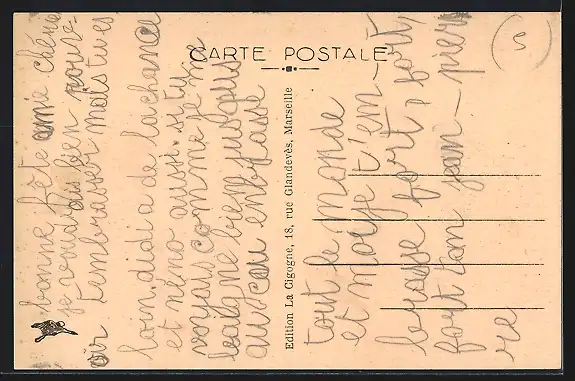 CARTE POSTALE
bonne fête amie chérie
je voudrais bien pouvo-
oir t'embrasser mais tu es
loin. didi a de la chance
et néno aussi. si tu
voyais comme je me
baigne bien jusqu
au cou
tout le monde
et moi je t'em-
brasse fort, fort,
fort ton jean-pier
re
Edition La Cigogne, 18, rue Glandevès, Marseille
5